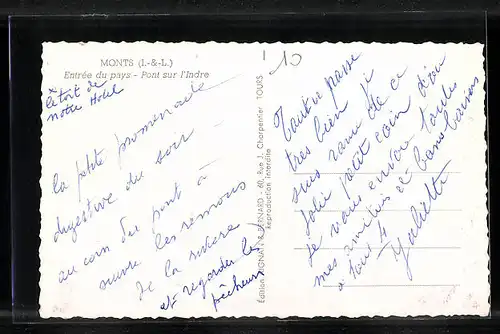 MONTS (I.-&-L.)
Entrée du pays - Pont sur l'Indre
x
notre Hotel
la petite promenade
digestive du soir
au coin du pont à
suivre les remous
de la rivière
et regarder les
pêcheurs
Édition RENARD, 60, Rue J. Charpentier TOURS
Reproduction Interdite
10
Tout se passe
très bien, je
suis ravie de ce
joli petit coin d'où
je vous envoie toutes
mes amitiés et bons baisers
à tous 4
Juliette